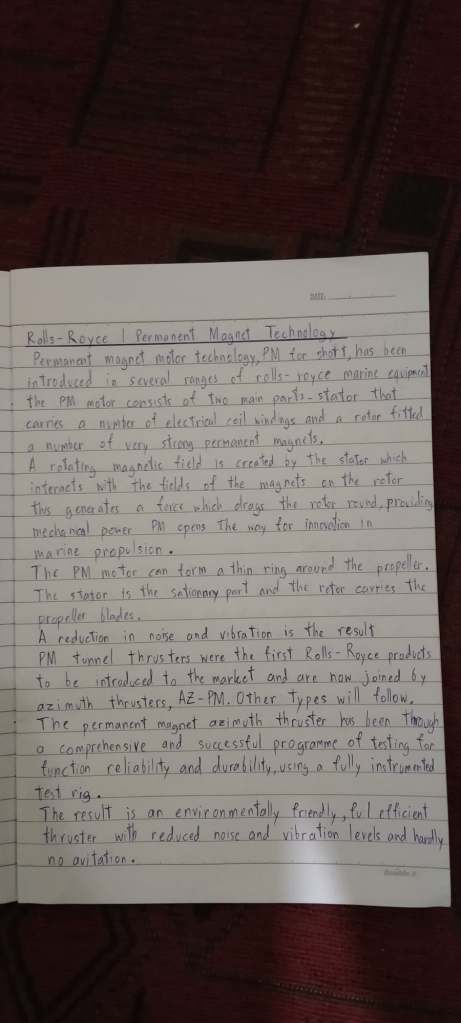 DATE:
Rolls-Royce | Permanent Magnet Technology
Permanent magnet motor technology, PM for short, has been
introduced in several ranges of rolls-royce marine equipment
the PM motor consists of two main parts - stator that
carries a number of electrical coil windings and a rotor fitted
a number of very strong permanent magnets.
A rotating magnetic field is created by the stator which
interacts with the fields of the magnets on the rotor
this generates a force which drags the rotor round, providing
mechanical power PM opens The way for innovation in
marine propulsion.
The PM motor can form a thin ring around the propeller.
The stator is the sationary part and the rotor carries the
propeller blades.
A reduction in noise and vibration is the result
PM tunnel thrusters were the first Rolls-Royce products
to be introduced to the market and are now joined by
azimuth thrusters, AZ-PM. Other types will follow.
The permanent magnet azimuth thruster has been through
a comprehensive and successful programme of testing for
function reliability and durability, using a fully instrumented
test rig.
The result is an environmentally friendly, ful efficient
thruster with reduced noise and vibration levels and hardly
no avitation.